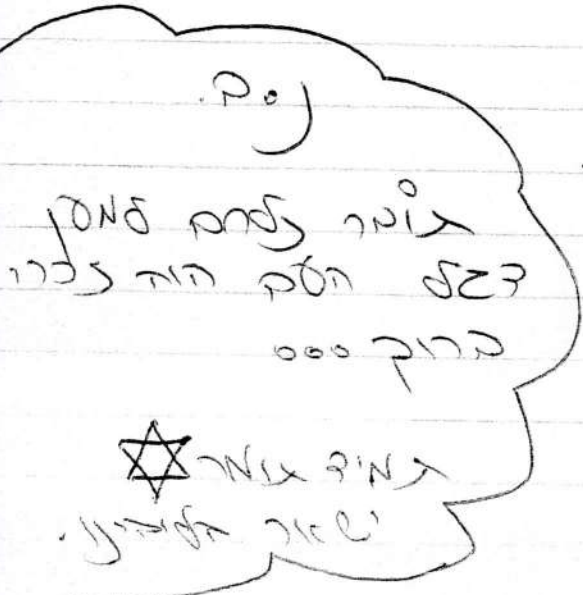 נ.ב.
תומר נלחם למען
דגל העם היה זכרו
ברוך ...
תמיד תומר
ישאר בליבינו.